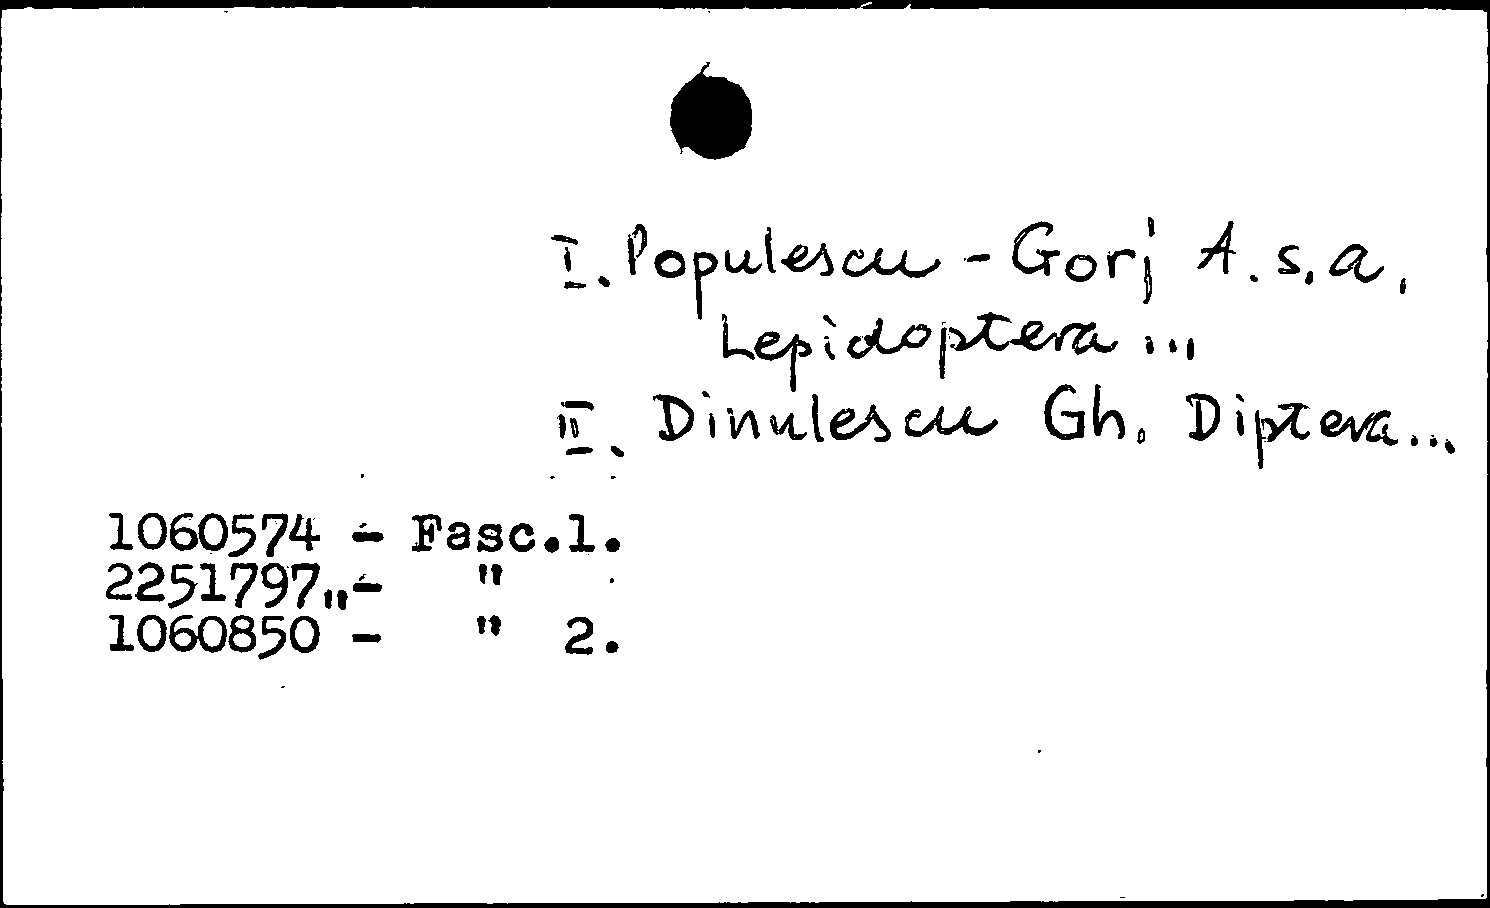 I. Populescu - Gorj A. s. a.
Lepidoptera ...
II. Dinulescu Gh. Diptera...
1060574 - Fasc.1.
2251797„- "
1060850 - " 2.